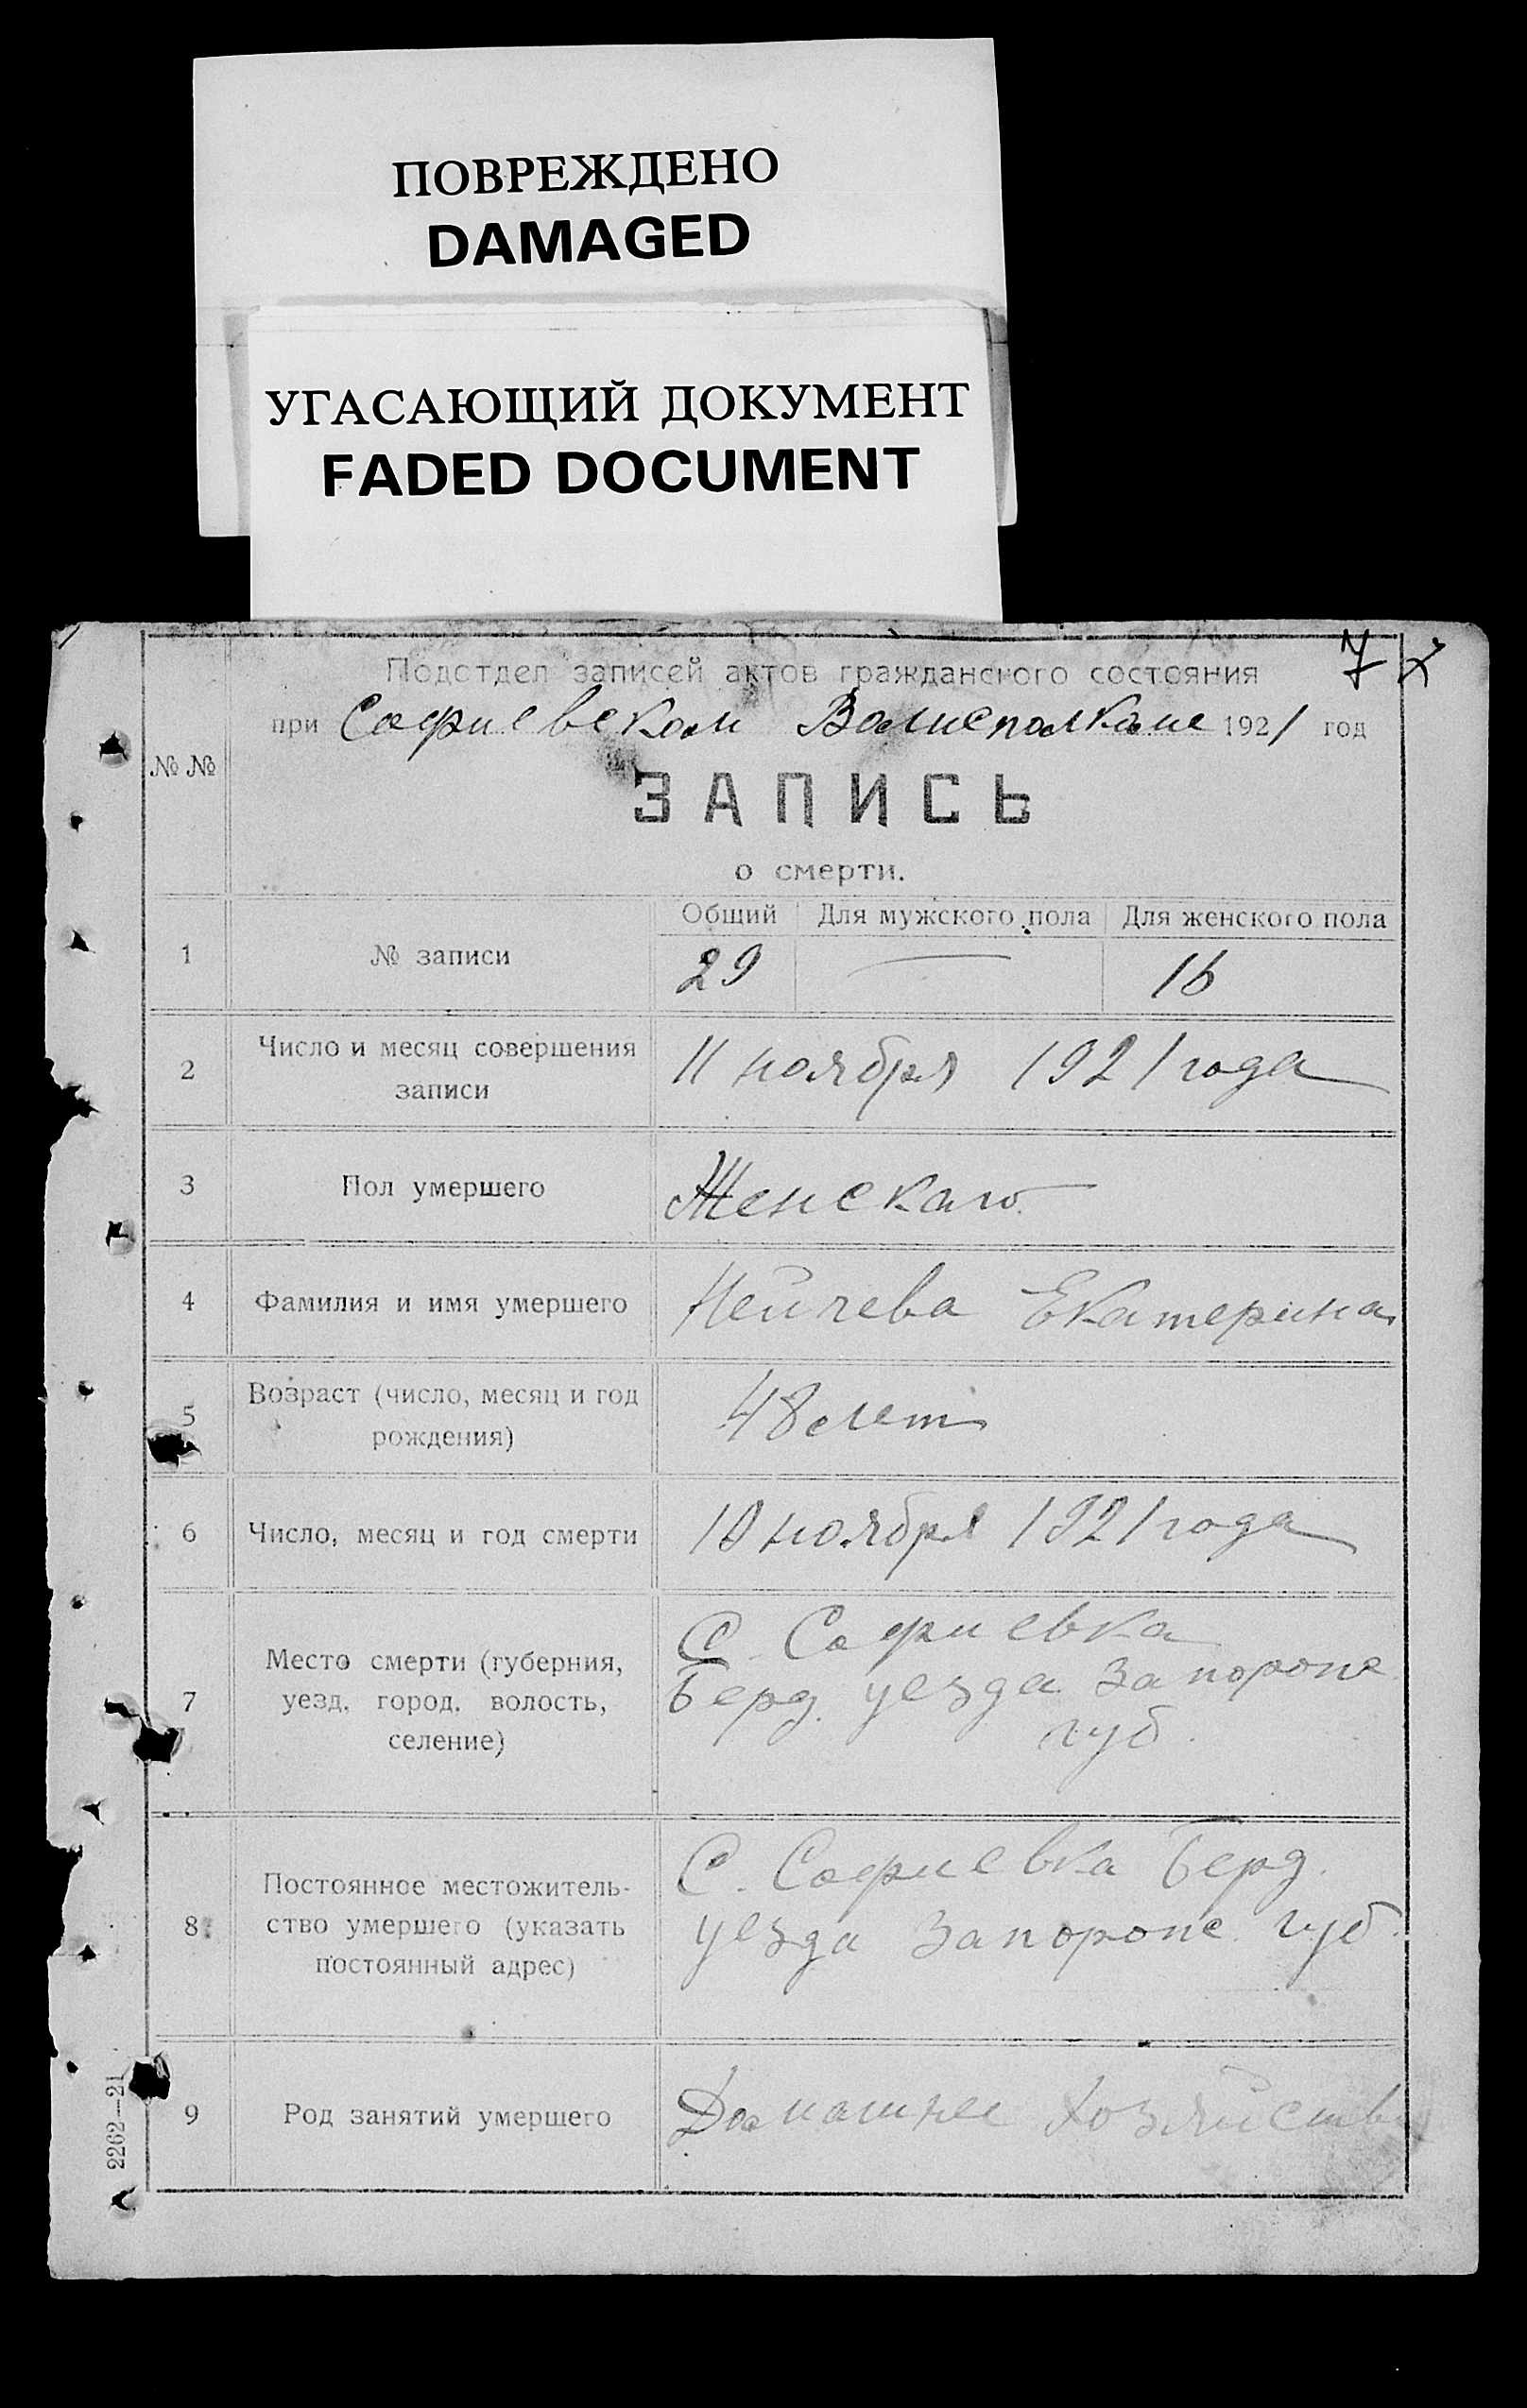 ПОВРЕЖДЕНО
DAMAGED
УГАСАЮЩИЙ ДОКУМЕНТ
FADED DOCUMENT
7
Подотдел записей актов гражданского состояния
при Софиевском Волисполкоме 1921 год
№ №
ЗАПИСЬ
о смерти.
Общий Для мужского пола Для женского пола
1 № записи 29 — 16
2 Число и месяц совершения
записи
11 ноября 1921 года
3 Пол умершего Женскаго
4 Фамилия и имя умершего Нейчева Екатерина
5 Возраст (число, месяц и год
рождения)
48 лет
6 Число, месяц и год смерти 10 ноября 1921 года
7 Место смерти (губерния,
уезд, город, волость,
селение)
С. Софиевка
Берд. уезда Запорож.
губ.
8 Постоянное местожитель-
ство умершего (указать
постоянный адрес)
С. Софиевка Берд.
уезда Запорож. губ.
9 Род занятий умершего Домашнее хозяйство
2262—21